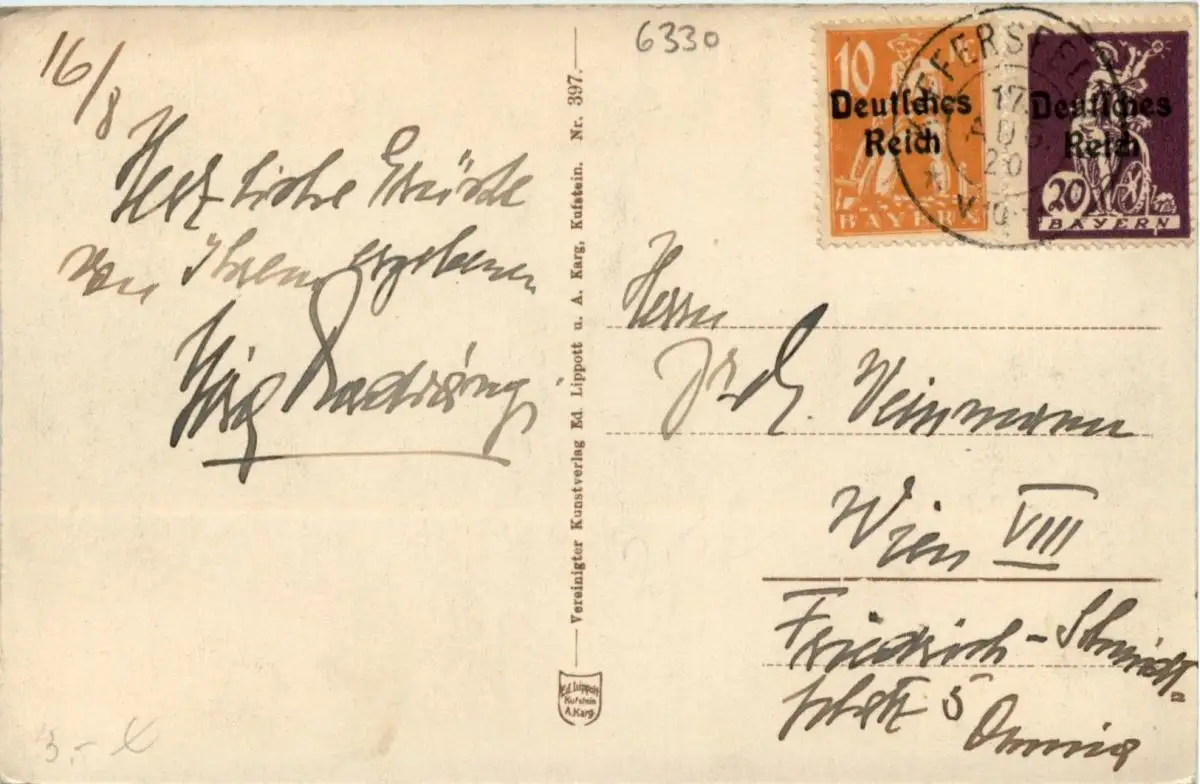 16/8
Herzliche Grüße
von Ihrem ergebenen
6330
10
Deutsches
Reich
BAYERN
20
Deutsches
Reich
BAYERN
17.
AUG.
20
Vereinigter Kunstverlag Ed. Lippott u. A. Karg, Kufstein. Nr. 397.
Ed. Lippott
Kufstein
A. Karg
Herrn
Dr. Weinmann
Wien VIII
Friedrich-Schmidt-
platz 5
3.-